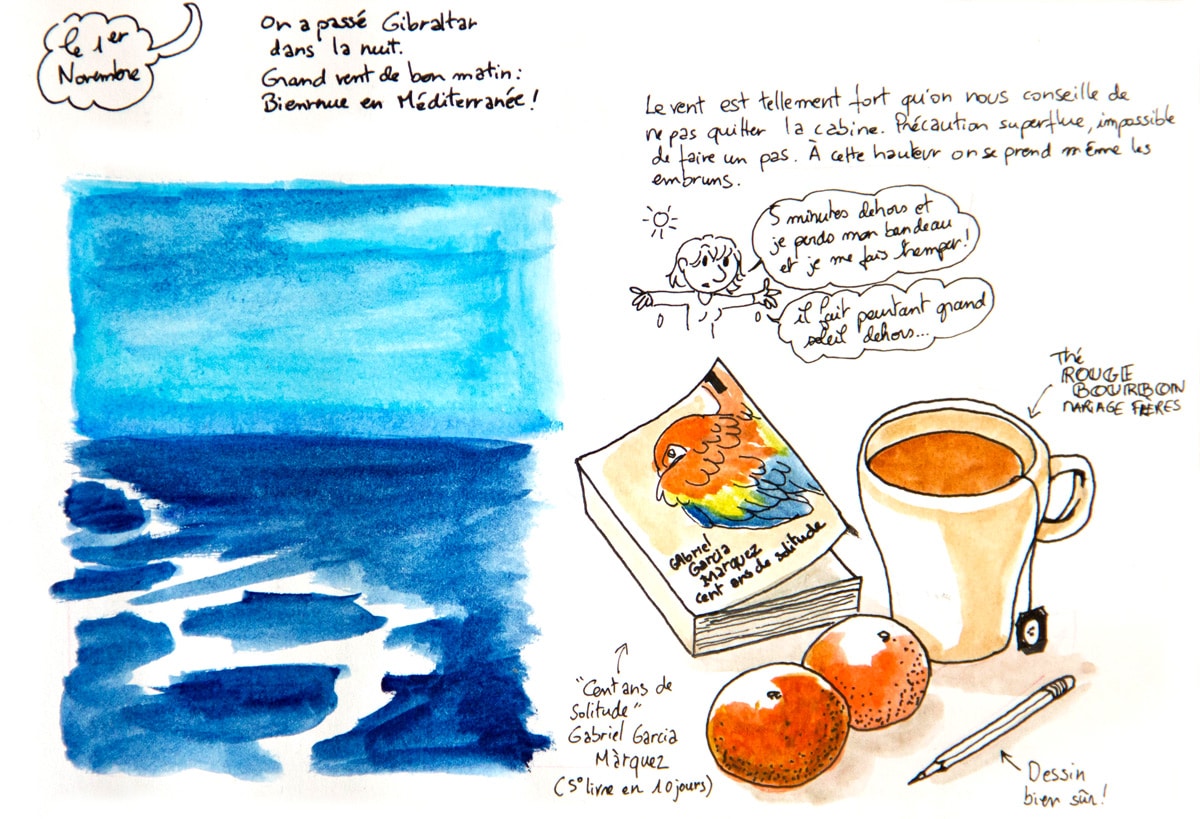 le 1er
Novembre
On a passé Gibraltar
dans la nuit.
Grand vent de bon matin :
Bienvenue en Méditerranée !
Le vent est tellement fort qu'on nous conseille de
ne pas quitter la cabine. Précaution superflue, impossible
de faire un pas. À cette hauteur on se prend même les
embruns.
5 minutes dehors et
je perds mon bandeau
et je me fais tremper !
il fait pourtant grand
soleil dehors...
Thé
ROUGE
BOURBON
MARIAGE FRÈRES
GAbriel
Garcia
Marquez
Cent ans de solitude
"Cent ans de
Solitude"
Gabriel Garcia
Màrquez
(5° livre en 10 jours)
Dessin
bien sûr !